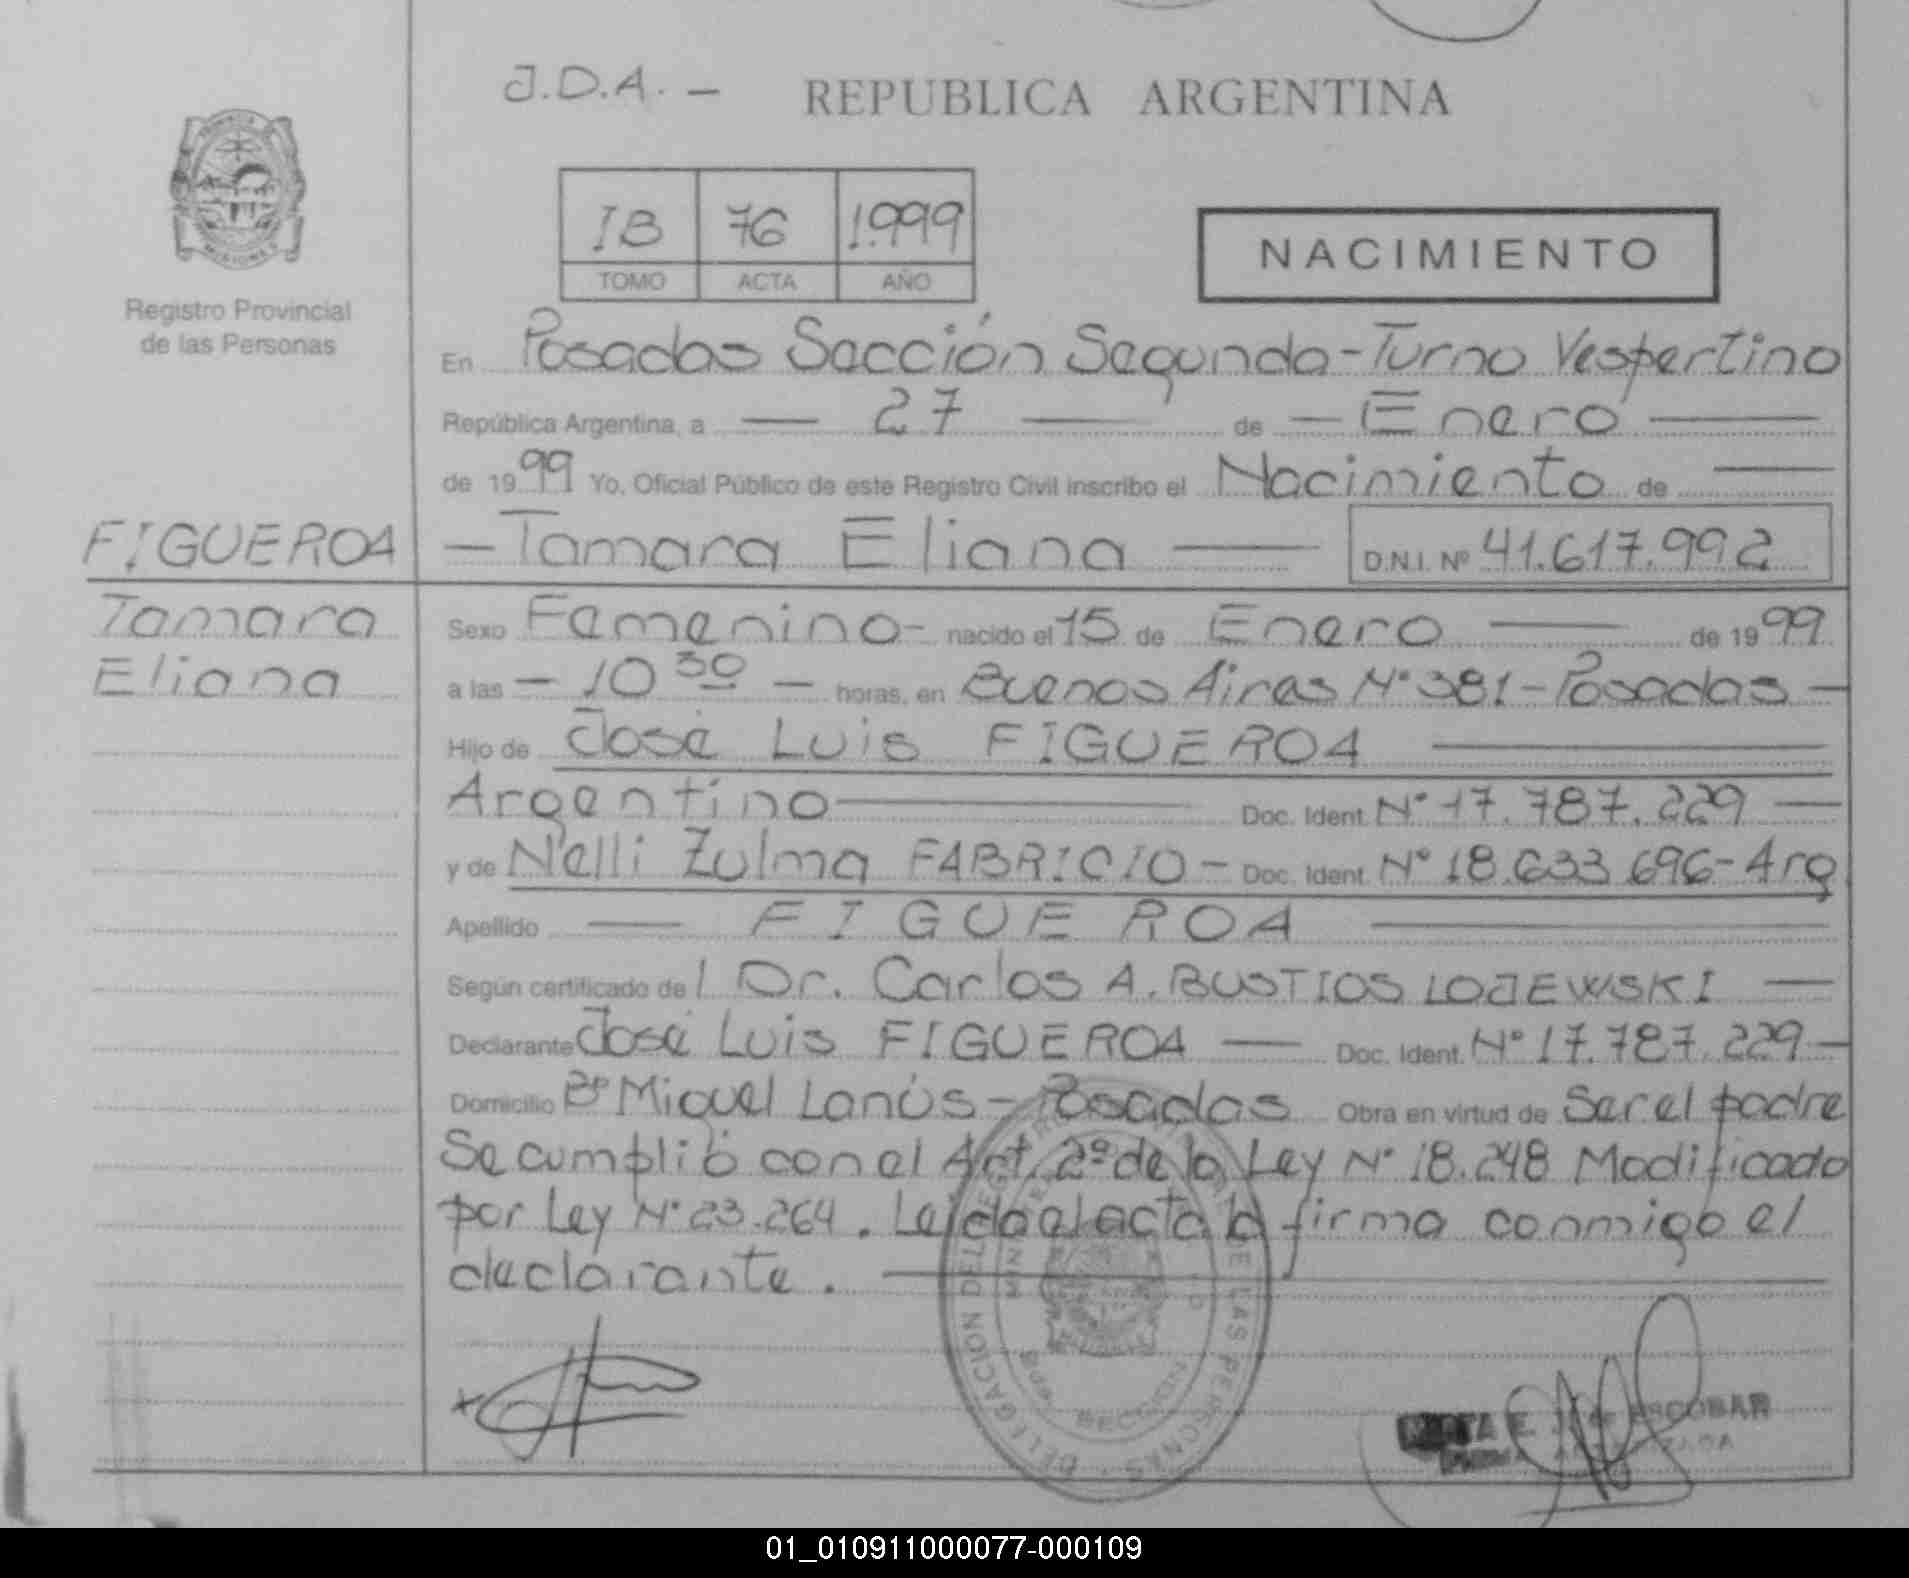 J.D.A. - REPUBLICA ARGENTINA
IB 76 1.999
TOMO ACTA AÑO
NACIMIENTO
Registro Provincial
de las Personas
En Posadas Sección Segunda-Turno Vespertino
República Argentina, a — 27 — de — Enero —
de 1999 Yo, Oficial Público de este Registro Civil inscribo el Nacimiento de —
FIGUEROA — Tamara Eliana — D.N.I. Nº 41.617.992
Tamara
Eliana
Sexo Femenino - nacido el 15 de Enero — de 1999
a las — 10 30 — horas, en Buenos Aires Nº 381 - Posadas —
Hijo de José Luis FIGUEROA —
Argentino — Doc. Ident. Nº 17.787.229 —
y de Nelli Zulma FABRICIO - Doc. Ident. Nº 18.633.696 - Arg
Apellido — FIGUEROA —
Según certificado del Dr. Carlos A. BUSTIOS LOJEWSKI —
Declarante José Luis FIGUEROA — Doc. Ident. Nº 17.787.229 —
Domicilio Bº Miguel Lanús - Posadas Obra en virtud de Ser el padre
Se cumplió con el Art. 2º de la Ley Nº 18.248 Modificado
por Ley Nº 23.264. Leída el acta la firma conmigo el
declarante. —
DELEGACION DEL REGISTRO DE LAS PERSONAS
SECCION
ESCOBAR
01_010911000077-000109